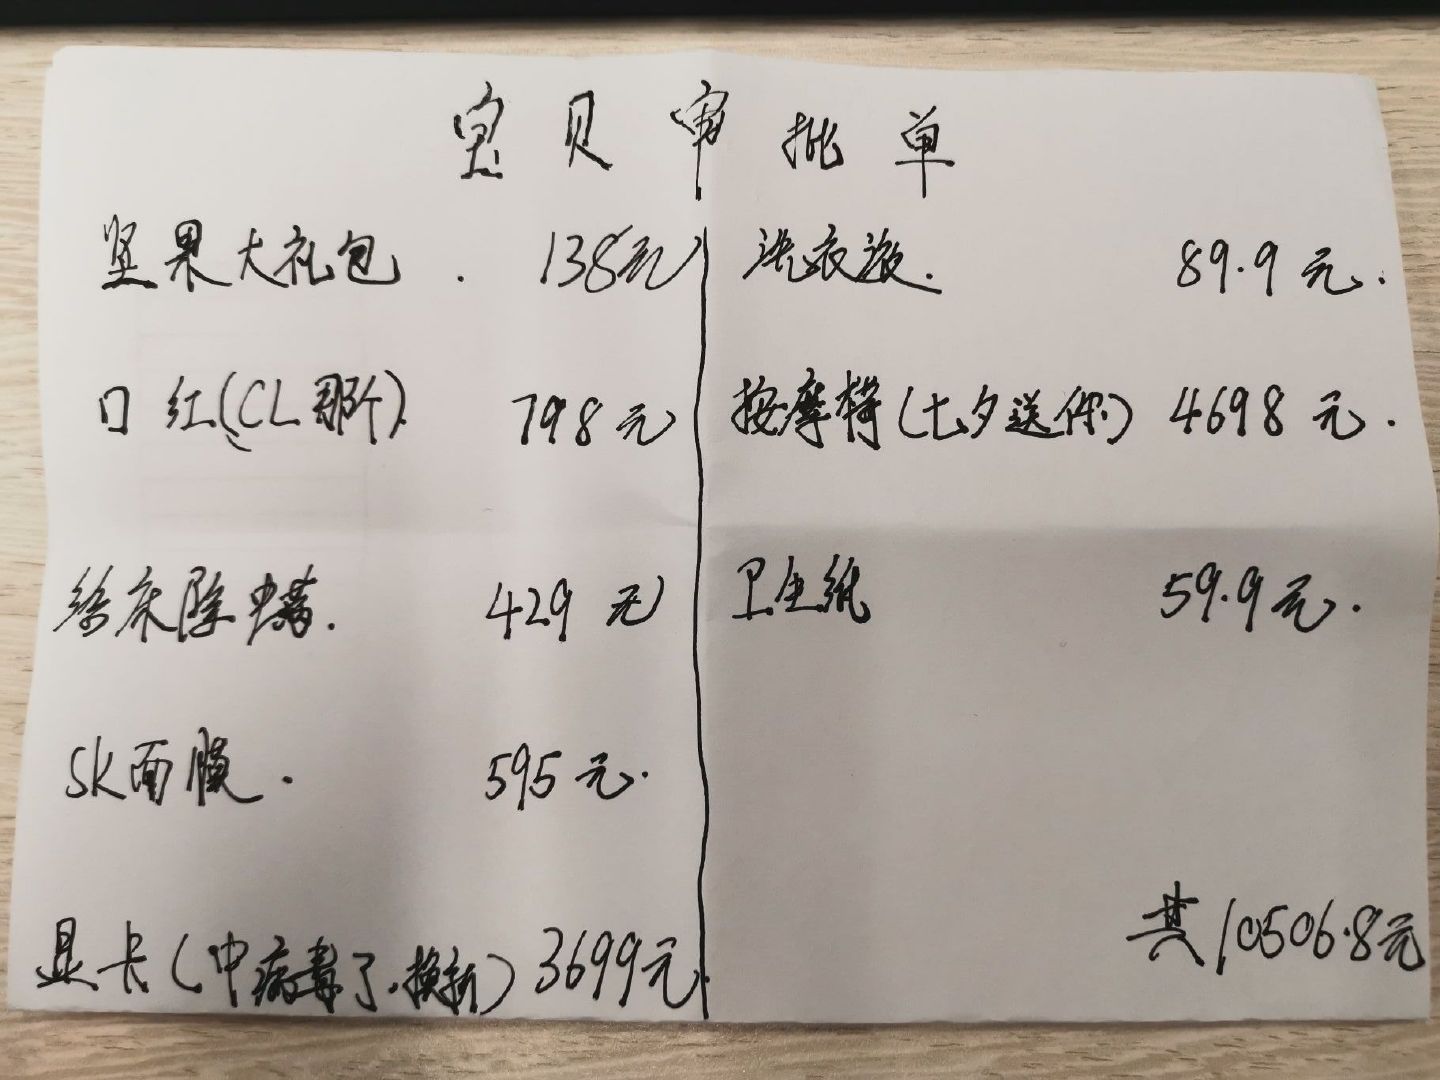 宝贝审批单
坚果大礼包. 138元
口红(CL那个). 798元
给床除螨. 429元
SK面膜. 595元.
显卡(中病毒了.换新) 3699元.
洗衣液. 89.9元.
按摩椅(七夕送你) 4698元.
卫生纸 59.9元.
共10506.8元